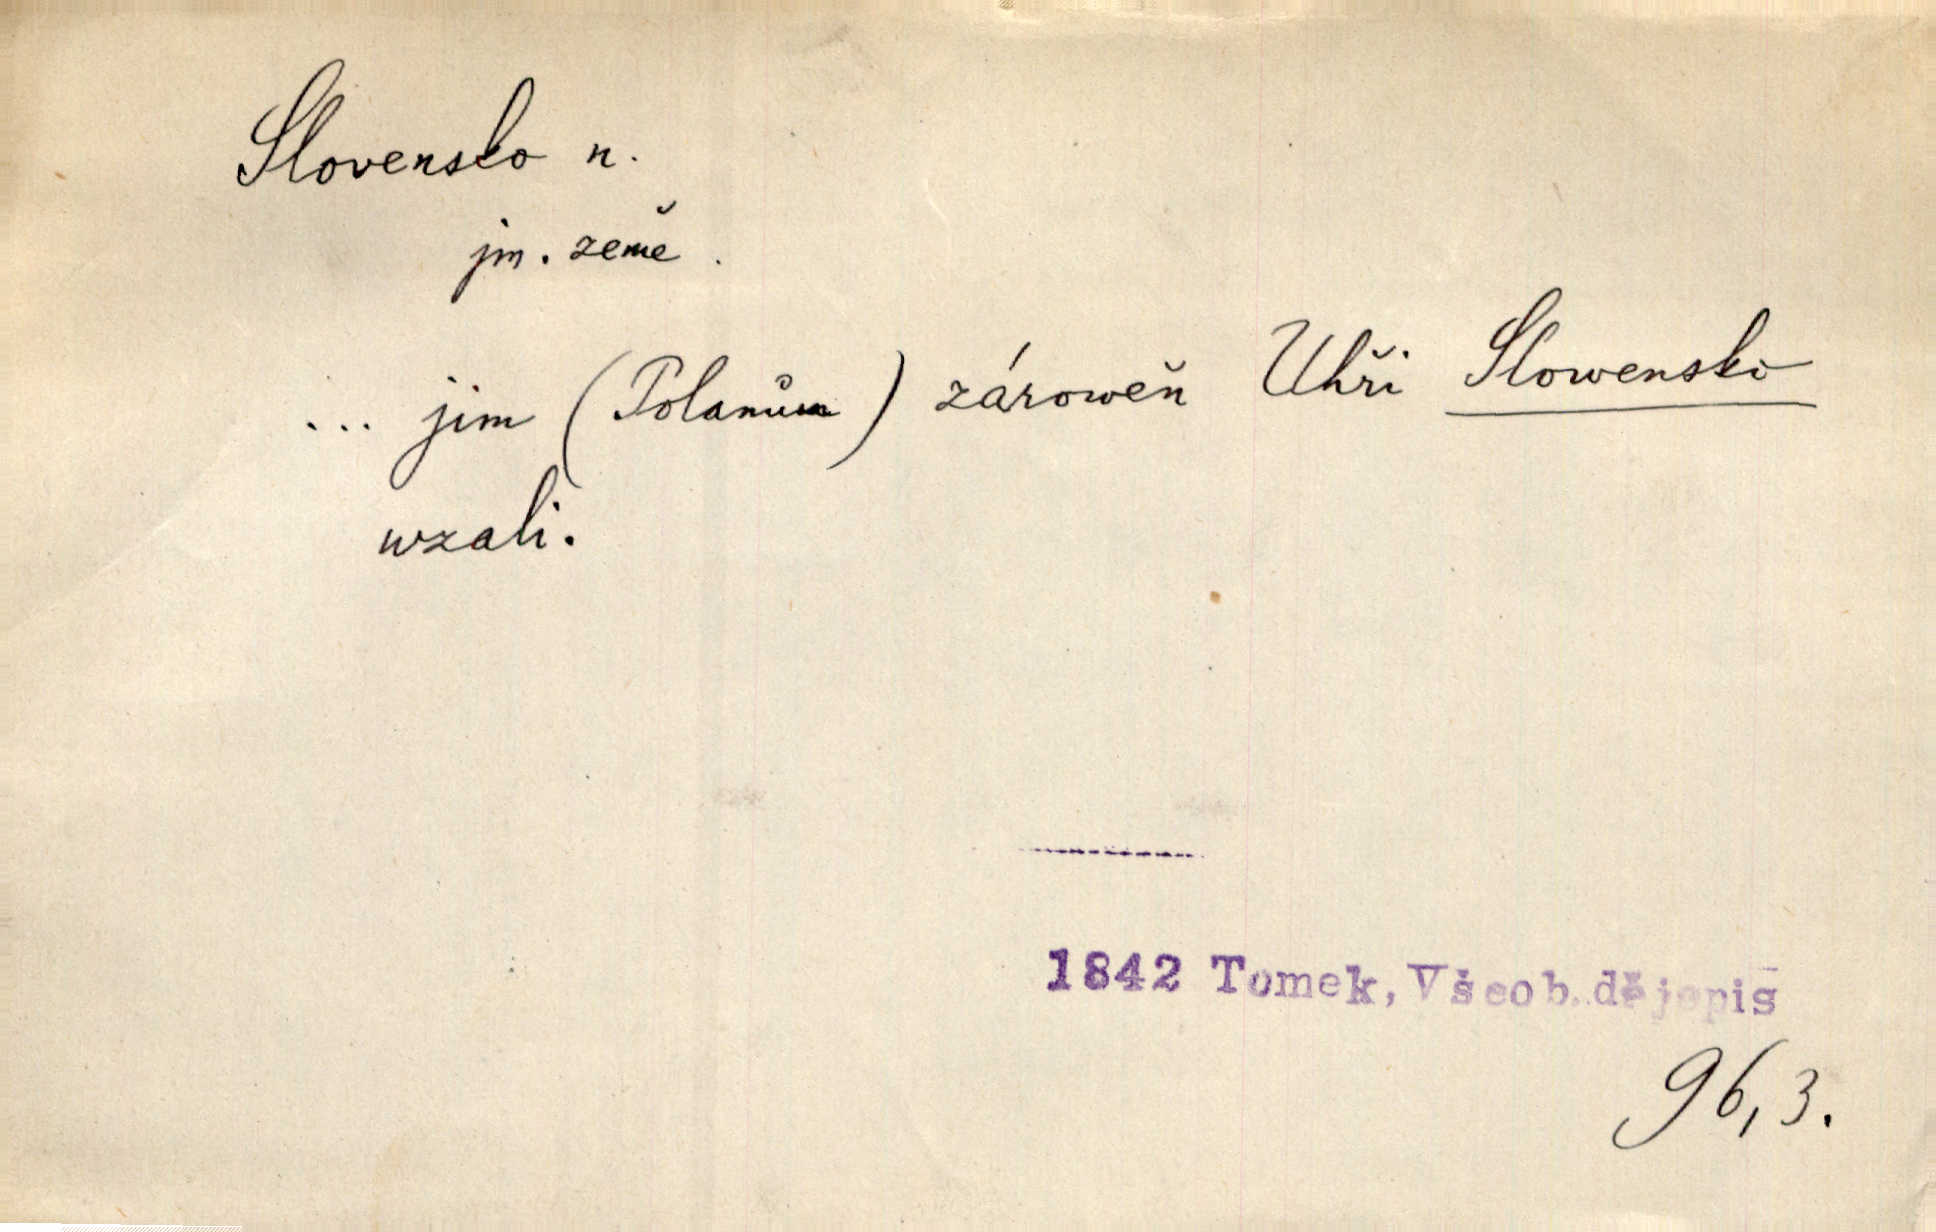 Slovensko n.
jm. země.
... jim (Polanům) zároweň Uhři Slowensko
wzali.
1842 Tomek, Všeob. dějepis
96,3.